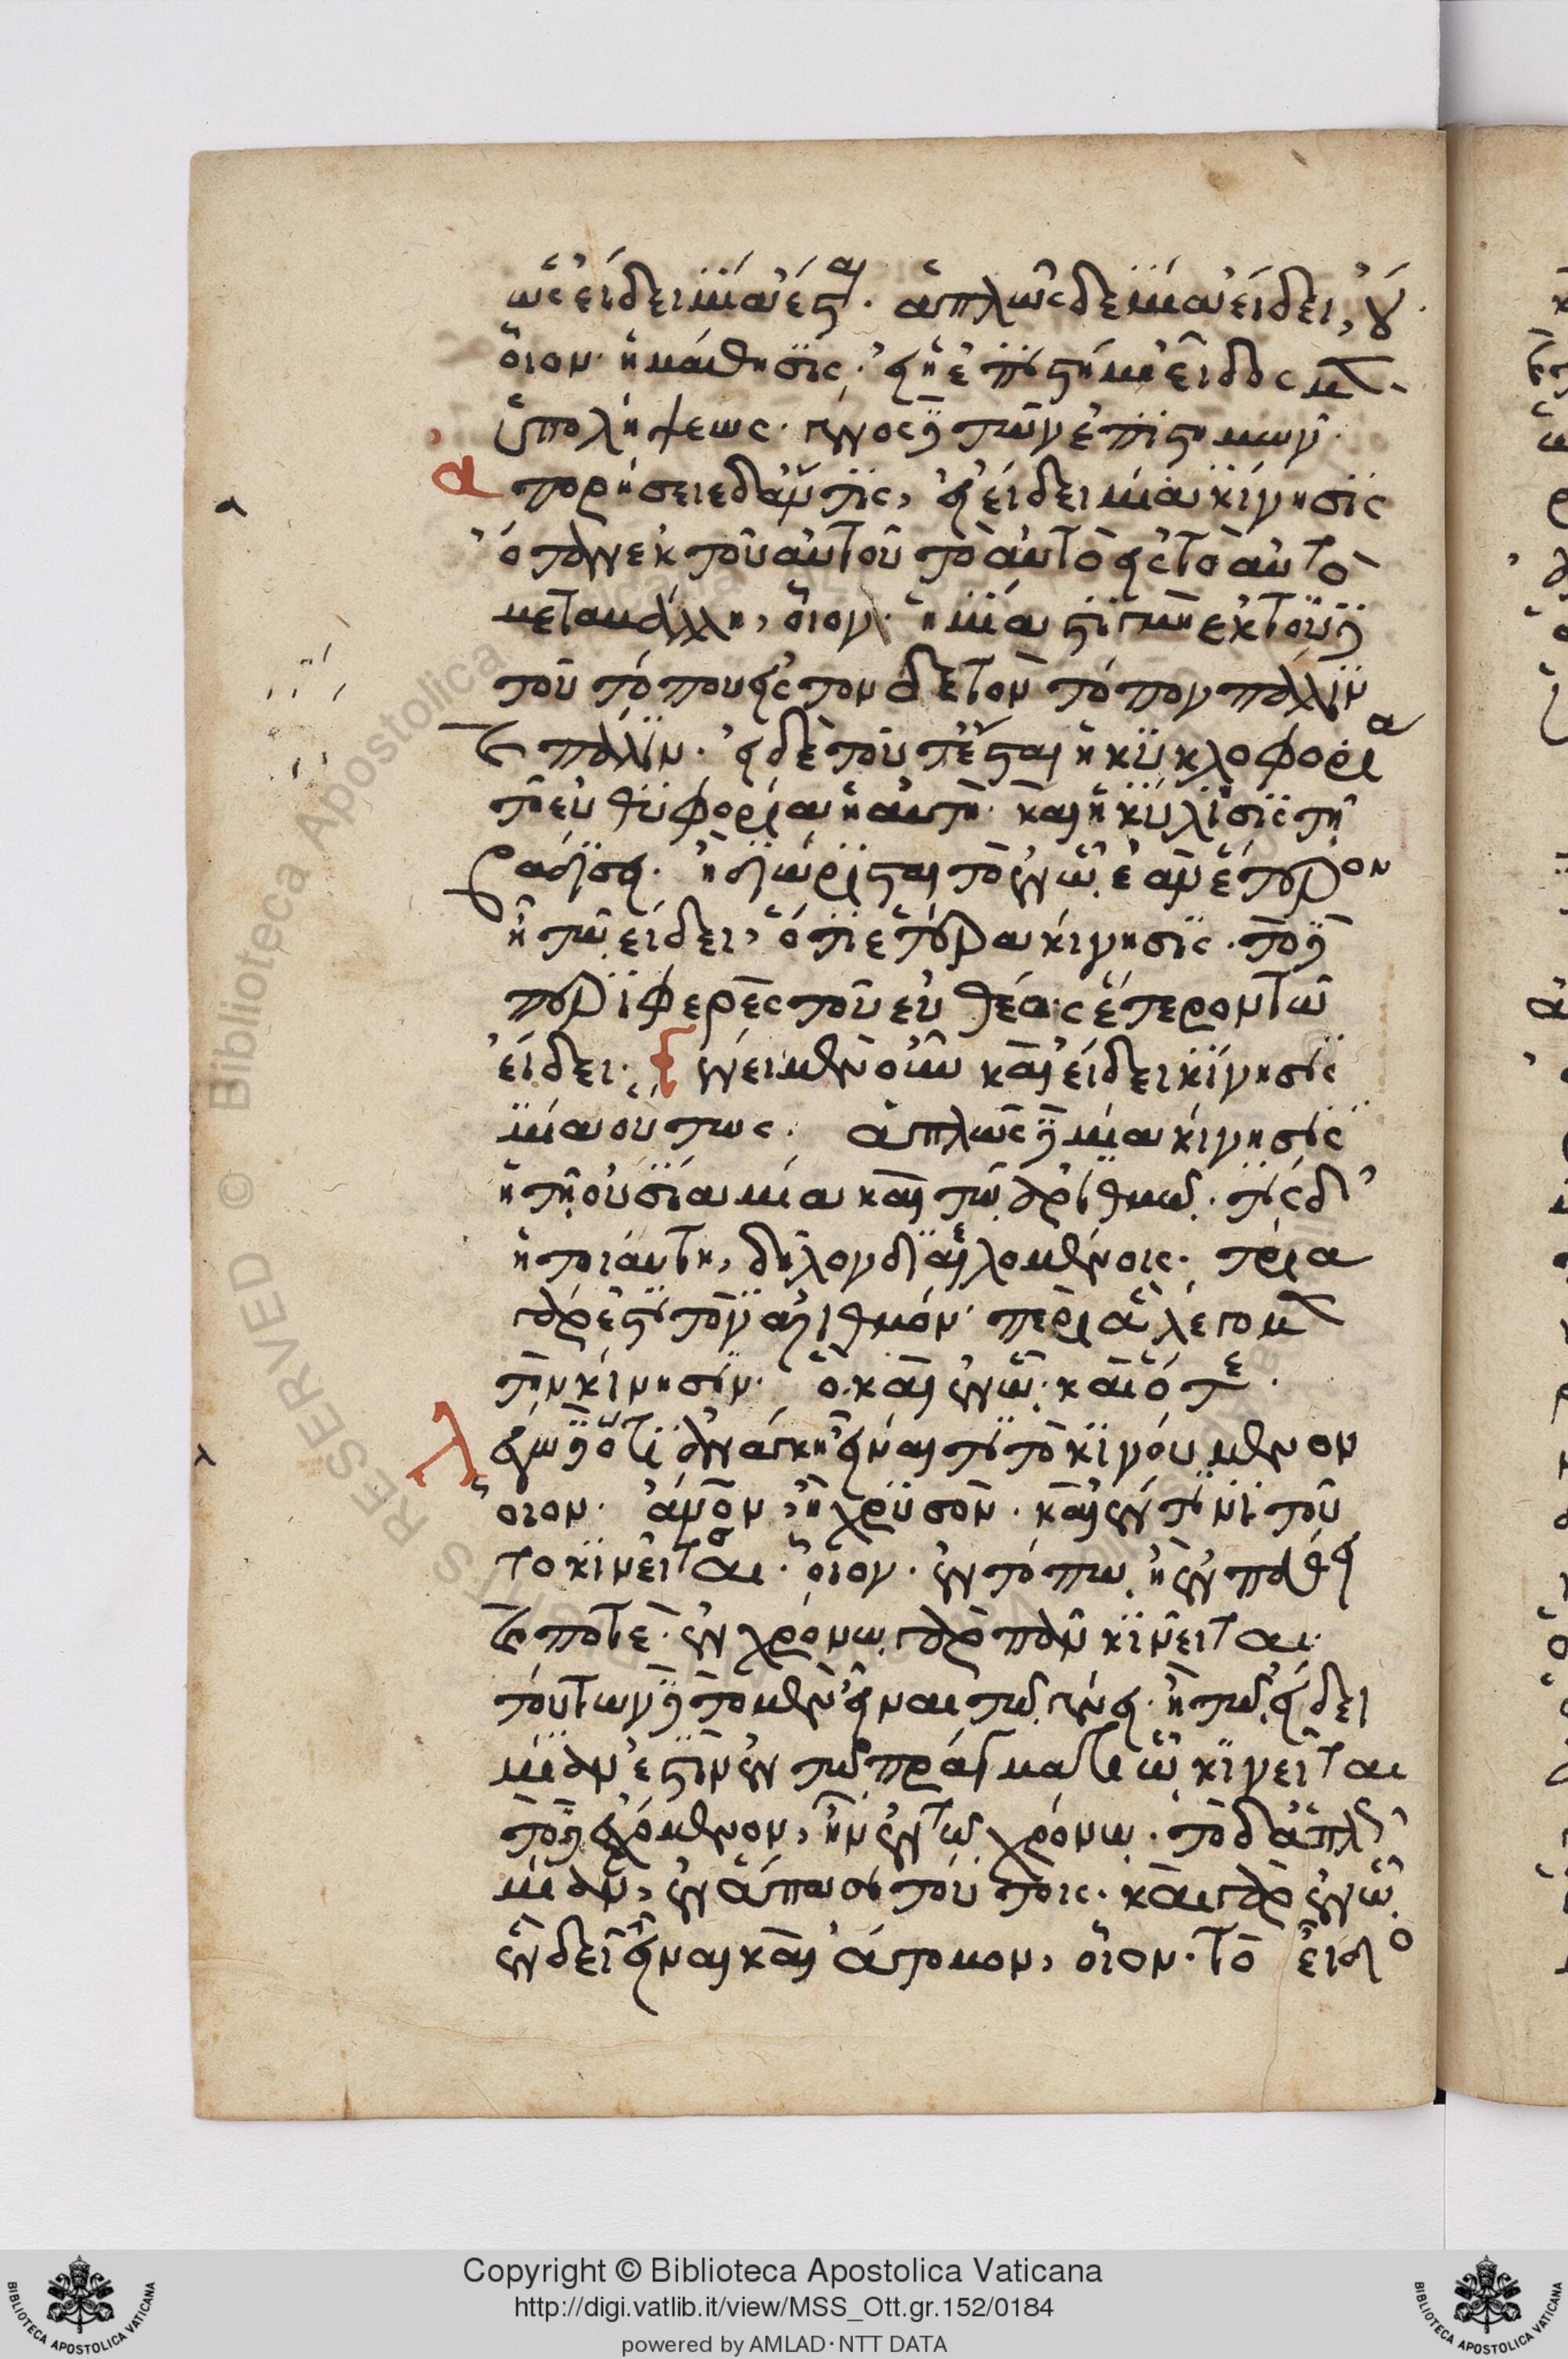 ὡς εἴδει μία ἔσται. ἁπλῶς δὲ μία εἴδει, οὔ.
οἷον ἡ μάθησις. εἰ ἡ ἐπιστήμη εἶδος μὲν
ὑπολήψεως. γένος δὲ τῶν ἐπιστημῶν.
ἀπορήσειε δ' ἄν τις, εἰ εἴδει μία κίνησις
ὅταν ἐκ τοῦ αὐτοῦ τὸ αὐτὸ εἰς τὸ αὐτὸ
μεταβάλλη, οἷον ἡ μία στιγμὴ ἐκ τοῦ δὲ
τοῦ τόπου εἰς τον δὲ τὸν τόπον πάλιν
καὶ πάλιν. εἰ δὲ τοῦτ' ἔσται ἡ κυκλοφορία
τῆ εὐθυφορία ἡ αὐτὴ. καὶ ἡ κύλισις τῆ
βαδίσει. ἢ διώρισται τὸ ἐν ᾧ ἐὰν ἕτερον
ἦ τῶ εἴδει, ὅτι ἑτέρα κίνησις. τὸ δὲ
περιφερὲς τοῦ εὐθέος ἕτερον τῶ
εἴδει. γένει μὲν οὖν καὶ εἴδει κίνησις
μία οὕτως. ἁπλῶς δὲ μία κίνησις
ἡ τῆ οὐσία μία καὶ τῶ ἀριθμῶ. τίς δ'
ἡ τοιαύτη, δῆλον διελομένοις. τρία
γάρ ἐστι τὸν ἀριθμόν. περὶ ἃ λέγομεν
τὴν κίνησιν. ὃ καὶ ἐν ᾧ. καὶ ὅτε.
λέγω δὲ ὅτι ἀνάγκη εἶναι τι τὸ κινούμενον
οἷον. ἄνον, ἢ χρυσὸν. καὶ ἔν τινι τοῦ
το κινεῖσθαι. οἷον. ἐν τόπω ἢ ἐν πάθει
καὶ ποτὲ. ἐν χρόνω γὰρ πᾶν κινεῖται.
τούτων δὲ τὸ μὲν εἶναι τῶ γένει. ἢ τῶ εἴδει
μίαν ἐστὶν ἐν τῶ πράγματι ἐν ᾧ κινεῖται
τὸ δὲ ἐχόμενον, ἦν ἐν τῶ χρόνω. τὸ δ' ἁπλῶς
μίαν, ἐν ἅπασι τούτοις. καὶ γὰρ ἐν ᾧ
ἓν δεῖ εἶναι καὶ ἄτομον, οἷον. τὸ εἶδος
α
λ
Biblioteca Apostolica
RESERVED © Biblioteca Apostolica
Copyright © Biblioteca Apostolica Vaticana
http://digi.vatlib.it/view/MSS_Ott.gr.152/0184
powered by AMLAD · NTT DATA
BIBLIOTECA APOSTOLICA VATICANA
BIBLIOTECA APOSTOLICA VATICANA